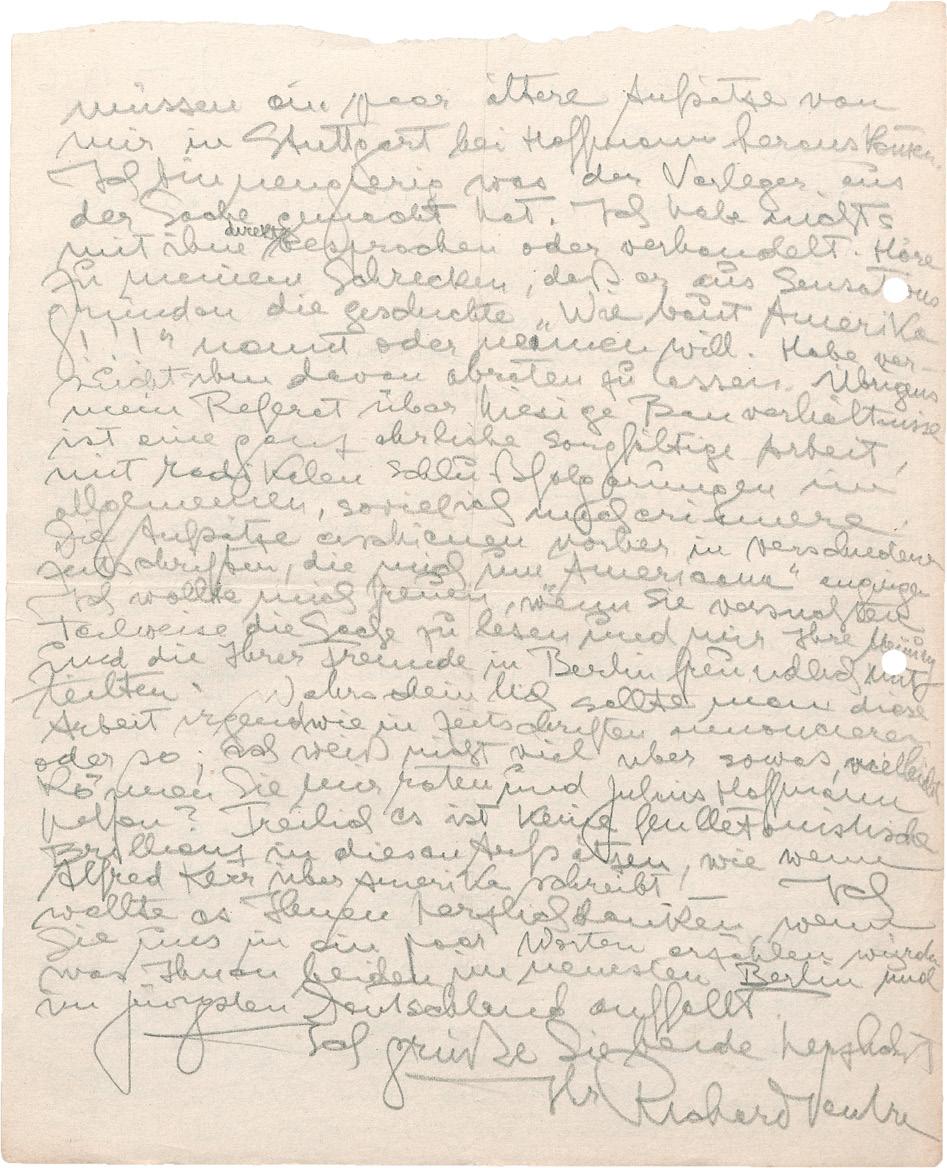 müssen ein paar ältere Aufsätze von
mir in Stuttgart bei Hoffmann heraus
Ich bin neugierig was der Verleger aus
der Sache gemacht hat. Ich habe nichts
mit ihm direkt besprochen oder verhandelt. Höre
zu meinem Schrecken, daß er aus Sensations
gründen die geschichte „Wie baut Amerika
!!!" nennt oder nennen will. Habe ver-
sucht ihm davon abraten zu lassen. Übrigens
mein Referat über hiesige Bauverhältnisse
ist eine ganz ehrliche sorgfältige Arbeit,
mit radikalen Schlußfolgerungen im
allgemeinen, soviel ich mich erinnere.
Die Aufsätze erschienen vorher in verschiedenen
Zeitschriften, die mich um „Americana" angingen
Ich wollte mich freuen, wenn Sie versuchten
Teilweise die Sache zu lesen und mir Ihre Meinung
und die Ihrer Freunde in Berlin freundlich mit
teilten. Wahrscheinlich sollte man diese
Arbeit irgendwie in Zeitschriften annoncieren
oder so; Ich weiß nicht viel über sowas, vielleicht
können Sie mir raten und Julius Hoffmann
helfen? Freilich es ist keine feuilletonistische
Brillianz in diesen Aufsätzen, wie wenn
Alfred Kerr über Amerika schreibt! Ich
wollte es Ihnen herzlich danken, wenn
Sie uns in ein paar Worten erzählen würden
was Ihnen beiden im neuesten Berlin und
im jüngsten Deutschland auffällt
Ich grüße Sie beide herzlichst
Ihr Richard Neutra